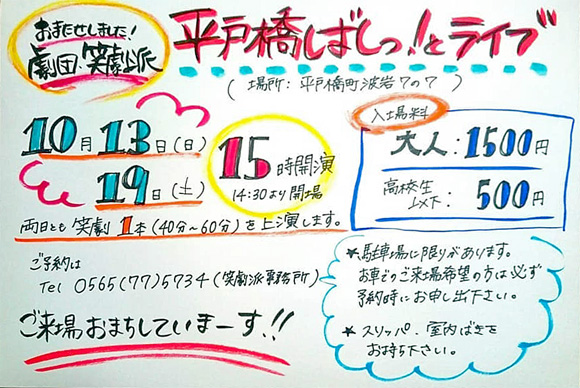 おまたせしました!
劇団・笑劇派
平戸橋しばしっ!とライブ
(場所:平戸橋町波岩7の7)
10月13日(日)
19日(土)
15時開演
14:30より開場
両日とも笑劇1本(40分~60分)を上演します。
入場料
大人:1500円
高校生以下:500円
ご予約は
Tel 0565(77)5734(笑劇派事務所)
ご来場おまちしていまーす!!
★駐車場に限りがあります。
お車でのご来場希望の方は必ず
予約時にお申し出下さい。
★スリッパ・室内ばきを
お持ち下さい。